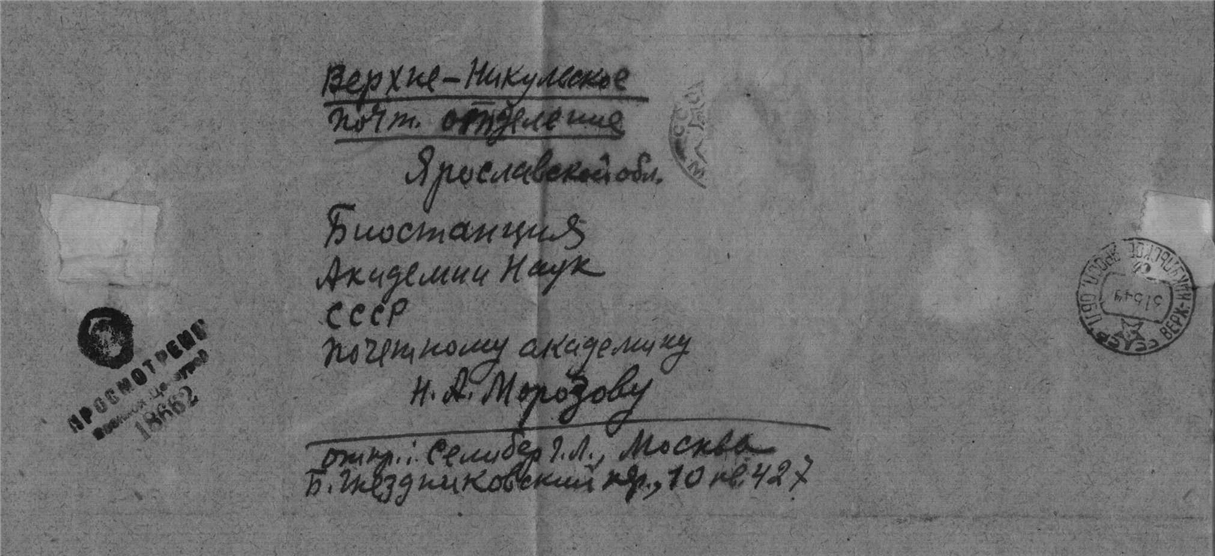 Верхне-Никульское
почт. отделение
Ярославской обл.
Биостанция
Академии Наук
СССР
почетному академику
Н. А. Морозову
отпр.: Селибер Г. Л., Москва
Б. Гнездниковский пер., 10 кв. 427
ПРОСМОТРЕНО
Военной Цензурой
18662
СССР
ВЕРХ-НИКУЛЬСКОЕ ЯРОСЛ. ОБЛ.